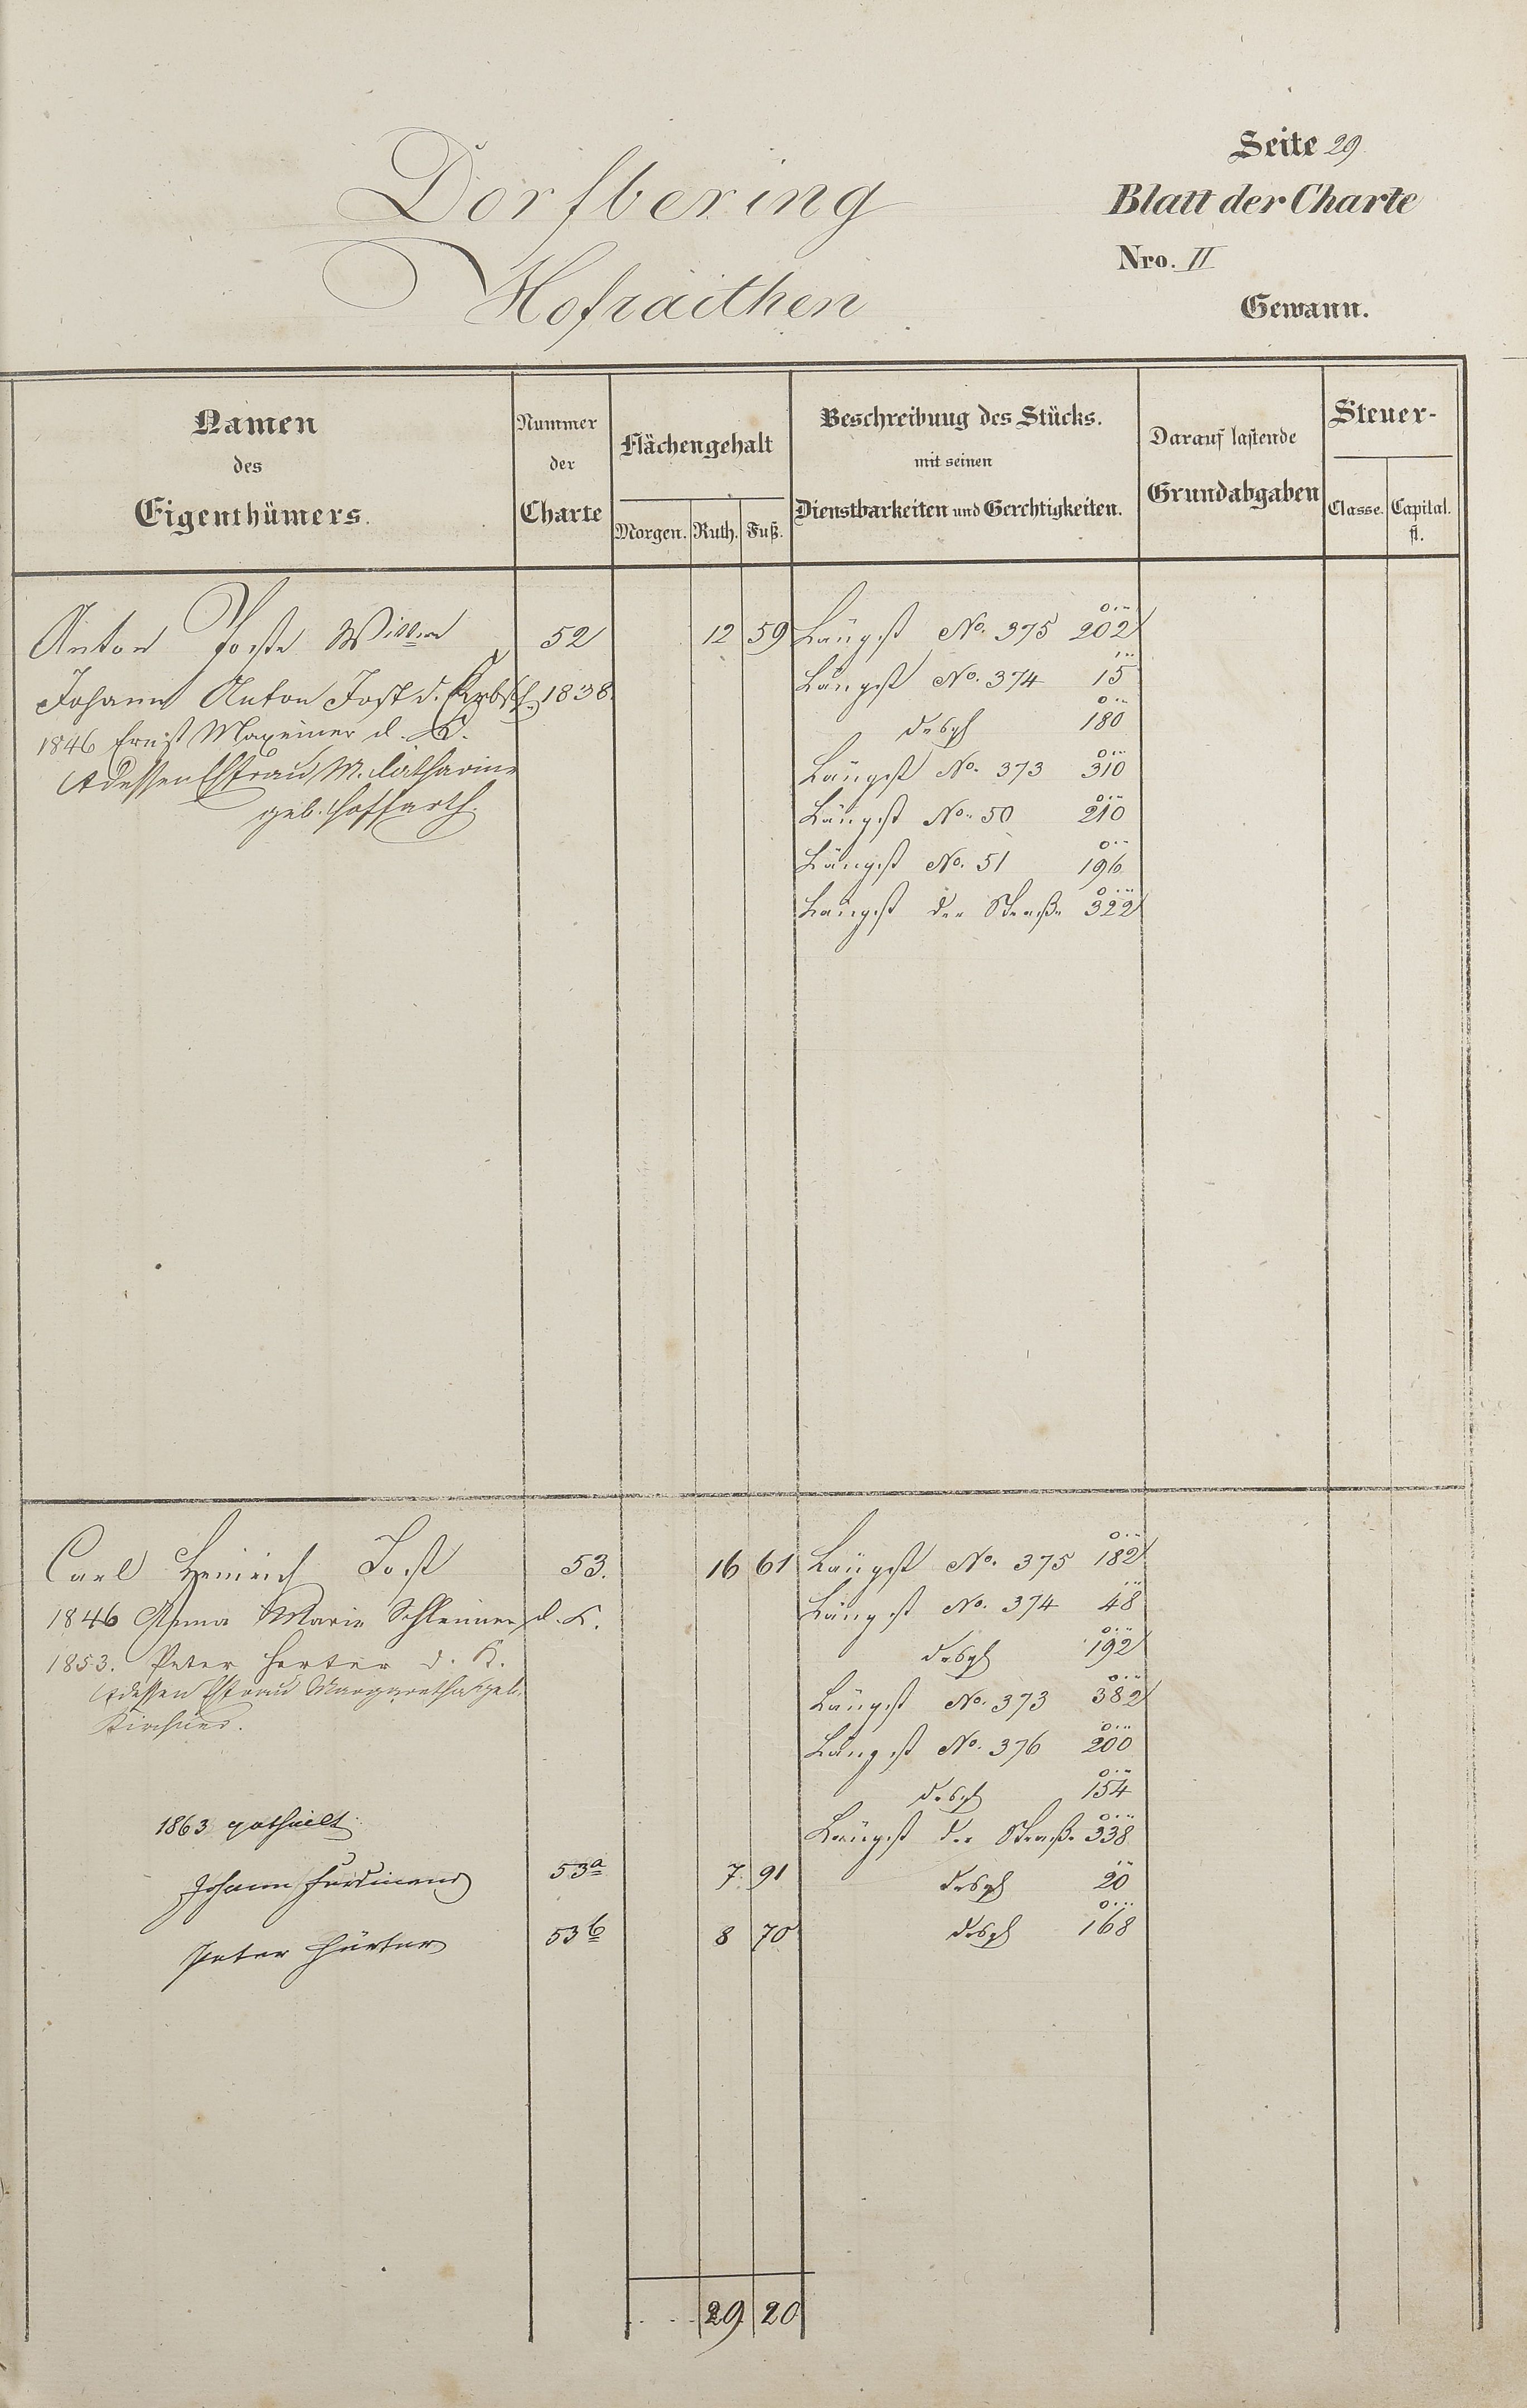 Seite 29
Dorfbering
Blatt der Charte
Nro. II
Hofraithen
Gewann.
Namen des Eigenthümers.
Nummer der Charte
Flächengehalt
Morgen. Ruth. Fuß.
Beschreibung des Stücks.
mit seinen
Dienstbarkeiten und Gerechtigkeiten.
Darauf lastende
Grundabgaben
Steuer-
Classe. Capital.
fl.
Anton Joste Wittwe 52 12 59 Längst No. 375 202
Johann Anton Jost d. Erbsch. 1838. Längst No. 374 15
1846 Ernst Maxeiner d. K. desgl 180
dessen Ehfrau M. Catharine Längst No. 373 310
geb. Hoffarth. Längst No. 50 210
Längst No. 51 196
Längst der Straße 322
Carl Heinrich Jost 53. 16 61 Längst No. 375 182
1846 Anna Maria Schleimer d. K. Längst No. 374 48
1853. Peter Herter d. K. desgl 192
dessen Ehfrau Margaretha geb. Längst No. 373 382
Kirchner. Längst No. 376 200
desgl 154
1863 getheilt Längst der Straße 338
Johann Ferdinand 53a 7 91 desgl 20
Peter Hürter 53b 8 70 desgl 168
29 20